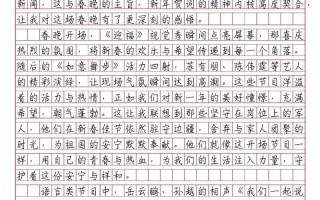 新闻，这与春晚的主旨、新年贺词的精神内核高度契合，
让我对这场春晚有了更深刻的感悟。
春晚开场，《迎福》视觉秀瞬间点亮屏幕，那喜庆
热烈的氛围，将新春的欢乐与希望传递到每一个角落。
随后的《如意舞步》活力四射，苏有朋、陈伟霆等艺人
的精彩演绎，让现场气氛瞬间达到高潮。这些节目洋溢
着的活力与热情，正如我们对新一年的美好憧憬，充满
希望，朝气蓬勃。这让我联想到那些坚守在岗位上的军
人，他们在新春佳节依然驻守边疆，舍弃与家人团聚的
时光，为祖国的安宁默默奉献。他们就像这春晚舞台一
样，用自己的青春与热血，为我们的生活注入力量，守
护着这份安宁与祥和。
语言类节目中，岳云鹏、孙越的相声《我们一起说